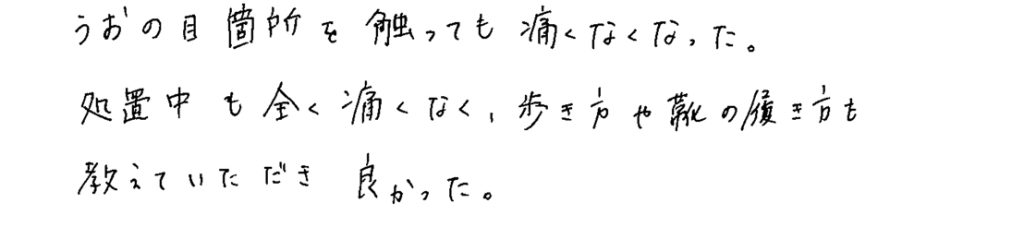 うおの目箇所を触っても痛くなくなった。
処置中も全く痛くなく、歩き方や靴の履き方も
教えていただき良かった。